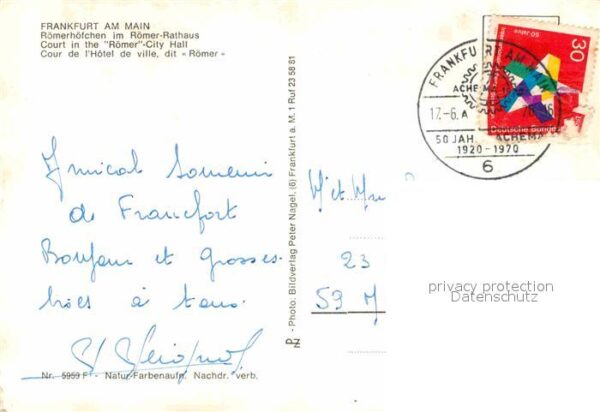 FRANKFURT AM MAIN
Römerhöfchen im Römer-Rathaus
Court in the "Römer"-City Hall
Cour de l'Hôtel de ville, dit «Römer»
Amical Souvenir
de Francfort
Bonjour et grosses
bises à tous
Nr. 5959 F - Natur-Farbenaufn. Nachdr. verb.
- Photo: Bildverlag Peter Nagel, (6) Frankfurt a. M. 1 Ruf 23 58 81
FRANKFURT AM MAIN
ACHEMA 1970
17.-6.
50 JAH ACHEMA
1920-1970
6
50 Jahre
30
Deutsche Bundes
M et Mme
23
59 M
privacy protection
Datenschutz